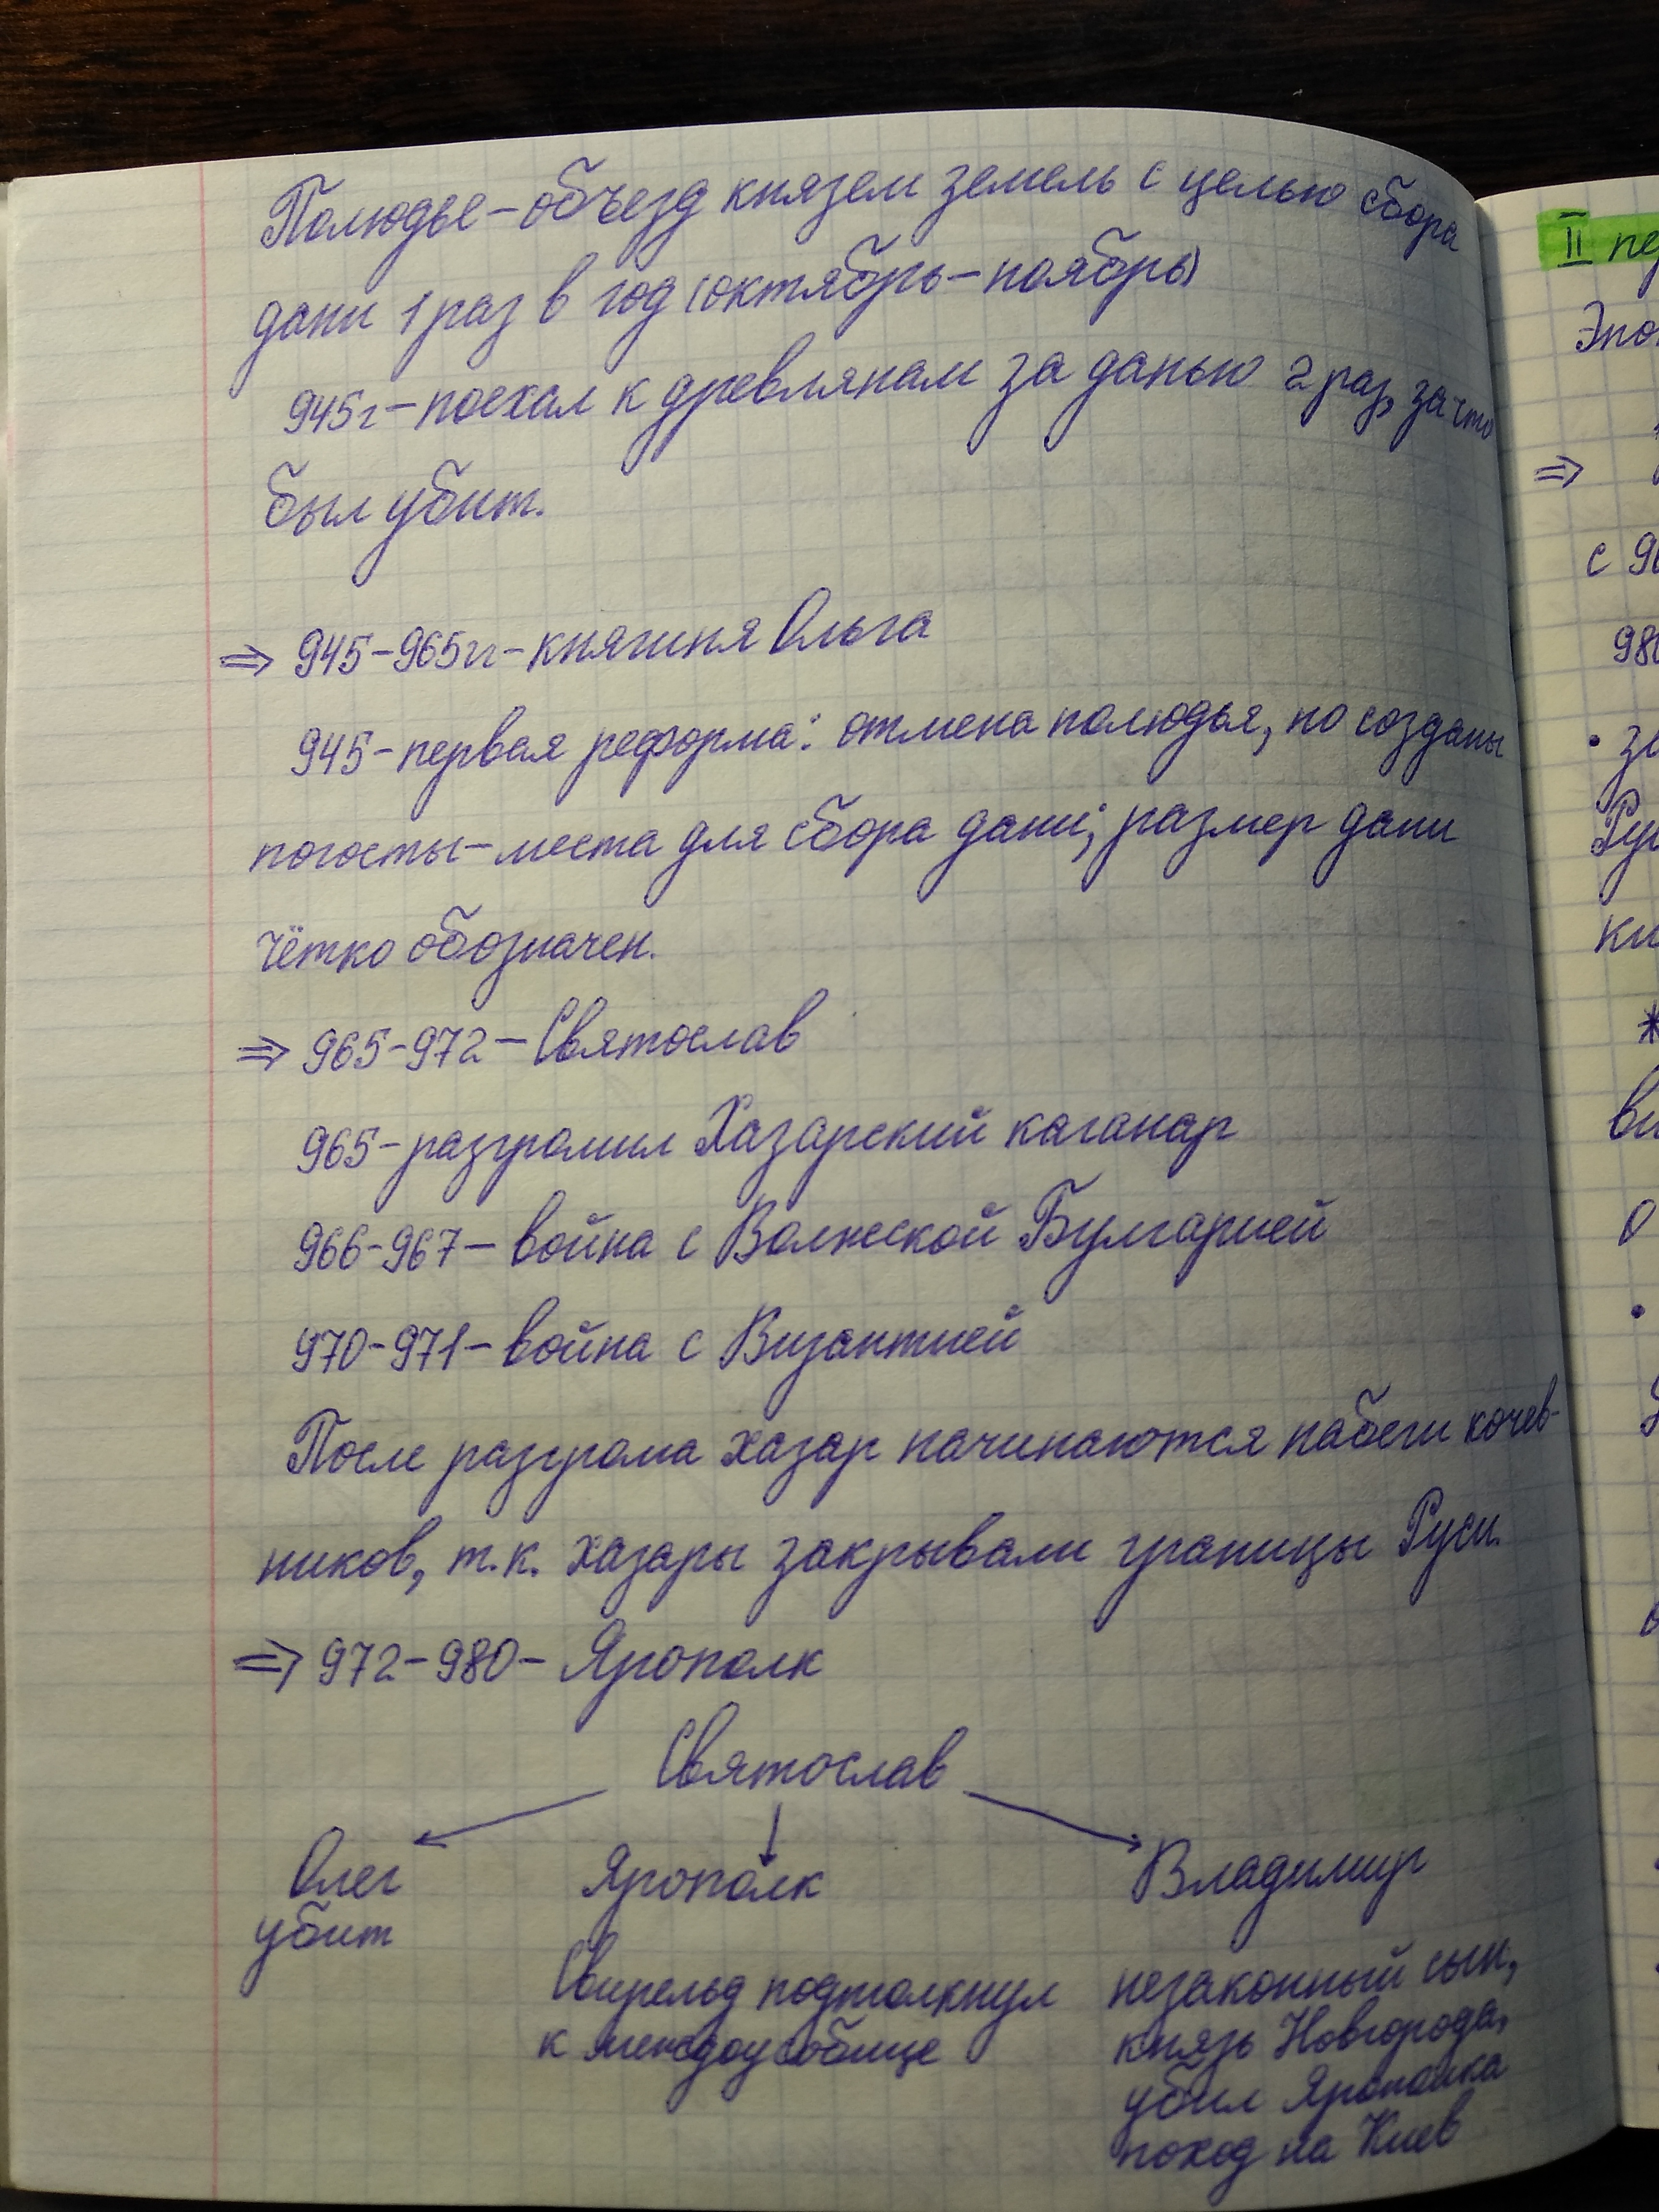 Полюдье – объезд князем земель с целью сбора
дани 1 раз в год (октябрь – ноябрь)
945г – поехал к древлянам за данью 2 раз, за что
был убит.
⇒ 945–965гг – княгиня Ольга
945 – первая реформа: отмена полюдья, но созданы
погосты – места для сбора дани; размер дани
чётко обозначен.
⇒ 965–972 – Святослав
965 – разгромил Хазарский каганар
966–967 – война с Волжской Булгарией
970–971 – война с Византией
После разгрома хазар начинаются набеги кочев-
ников, т.к. хазары закрывали границы Руси.
⇒ 972–980 – Ярополк
Святослав
Олег Ярополк Владимир
убит
Свирельд подтолкнул незаконный сын,
к междоусобице князь Новгорода,
убил Ярополка
поход на Киев
II пе
Эпо
⇒
с 9
98
• за
Ру
ки
*
ви
о
•